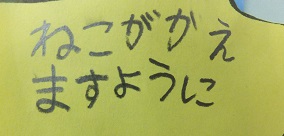 ねこがかえ
ますように